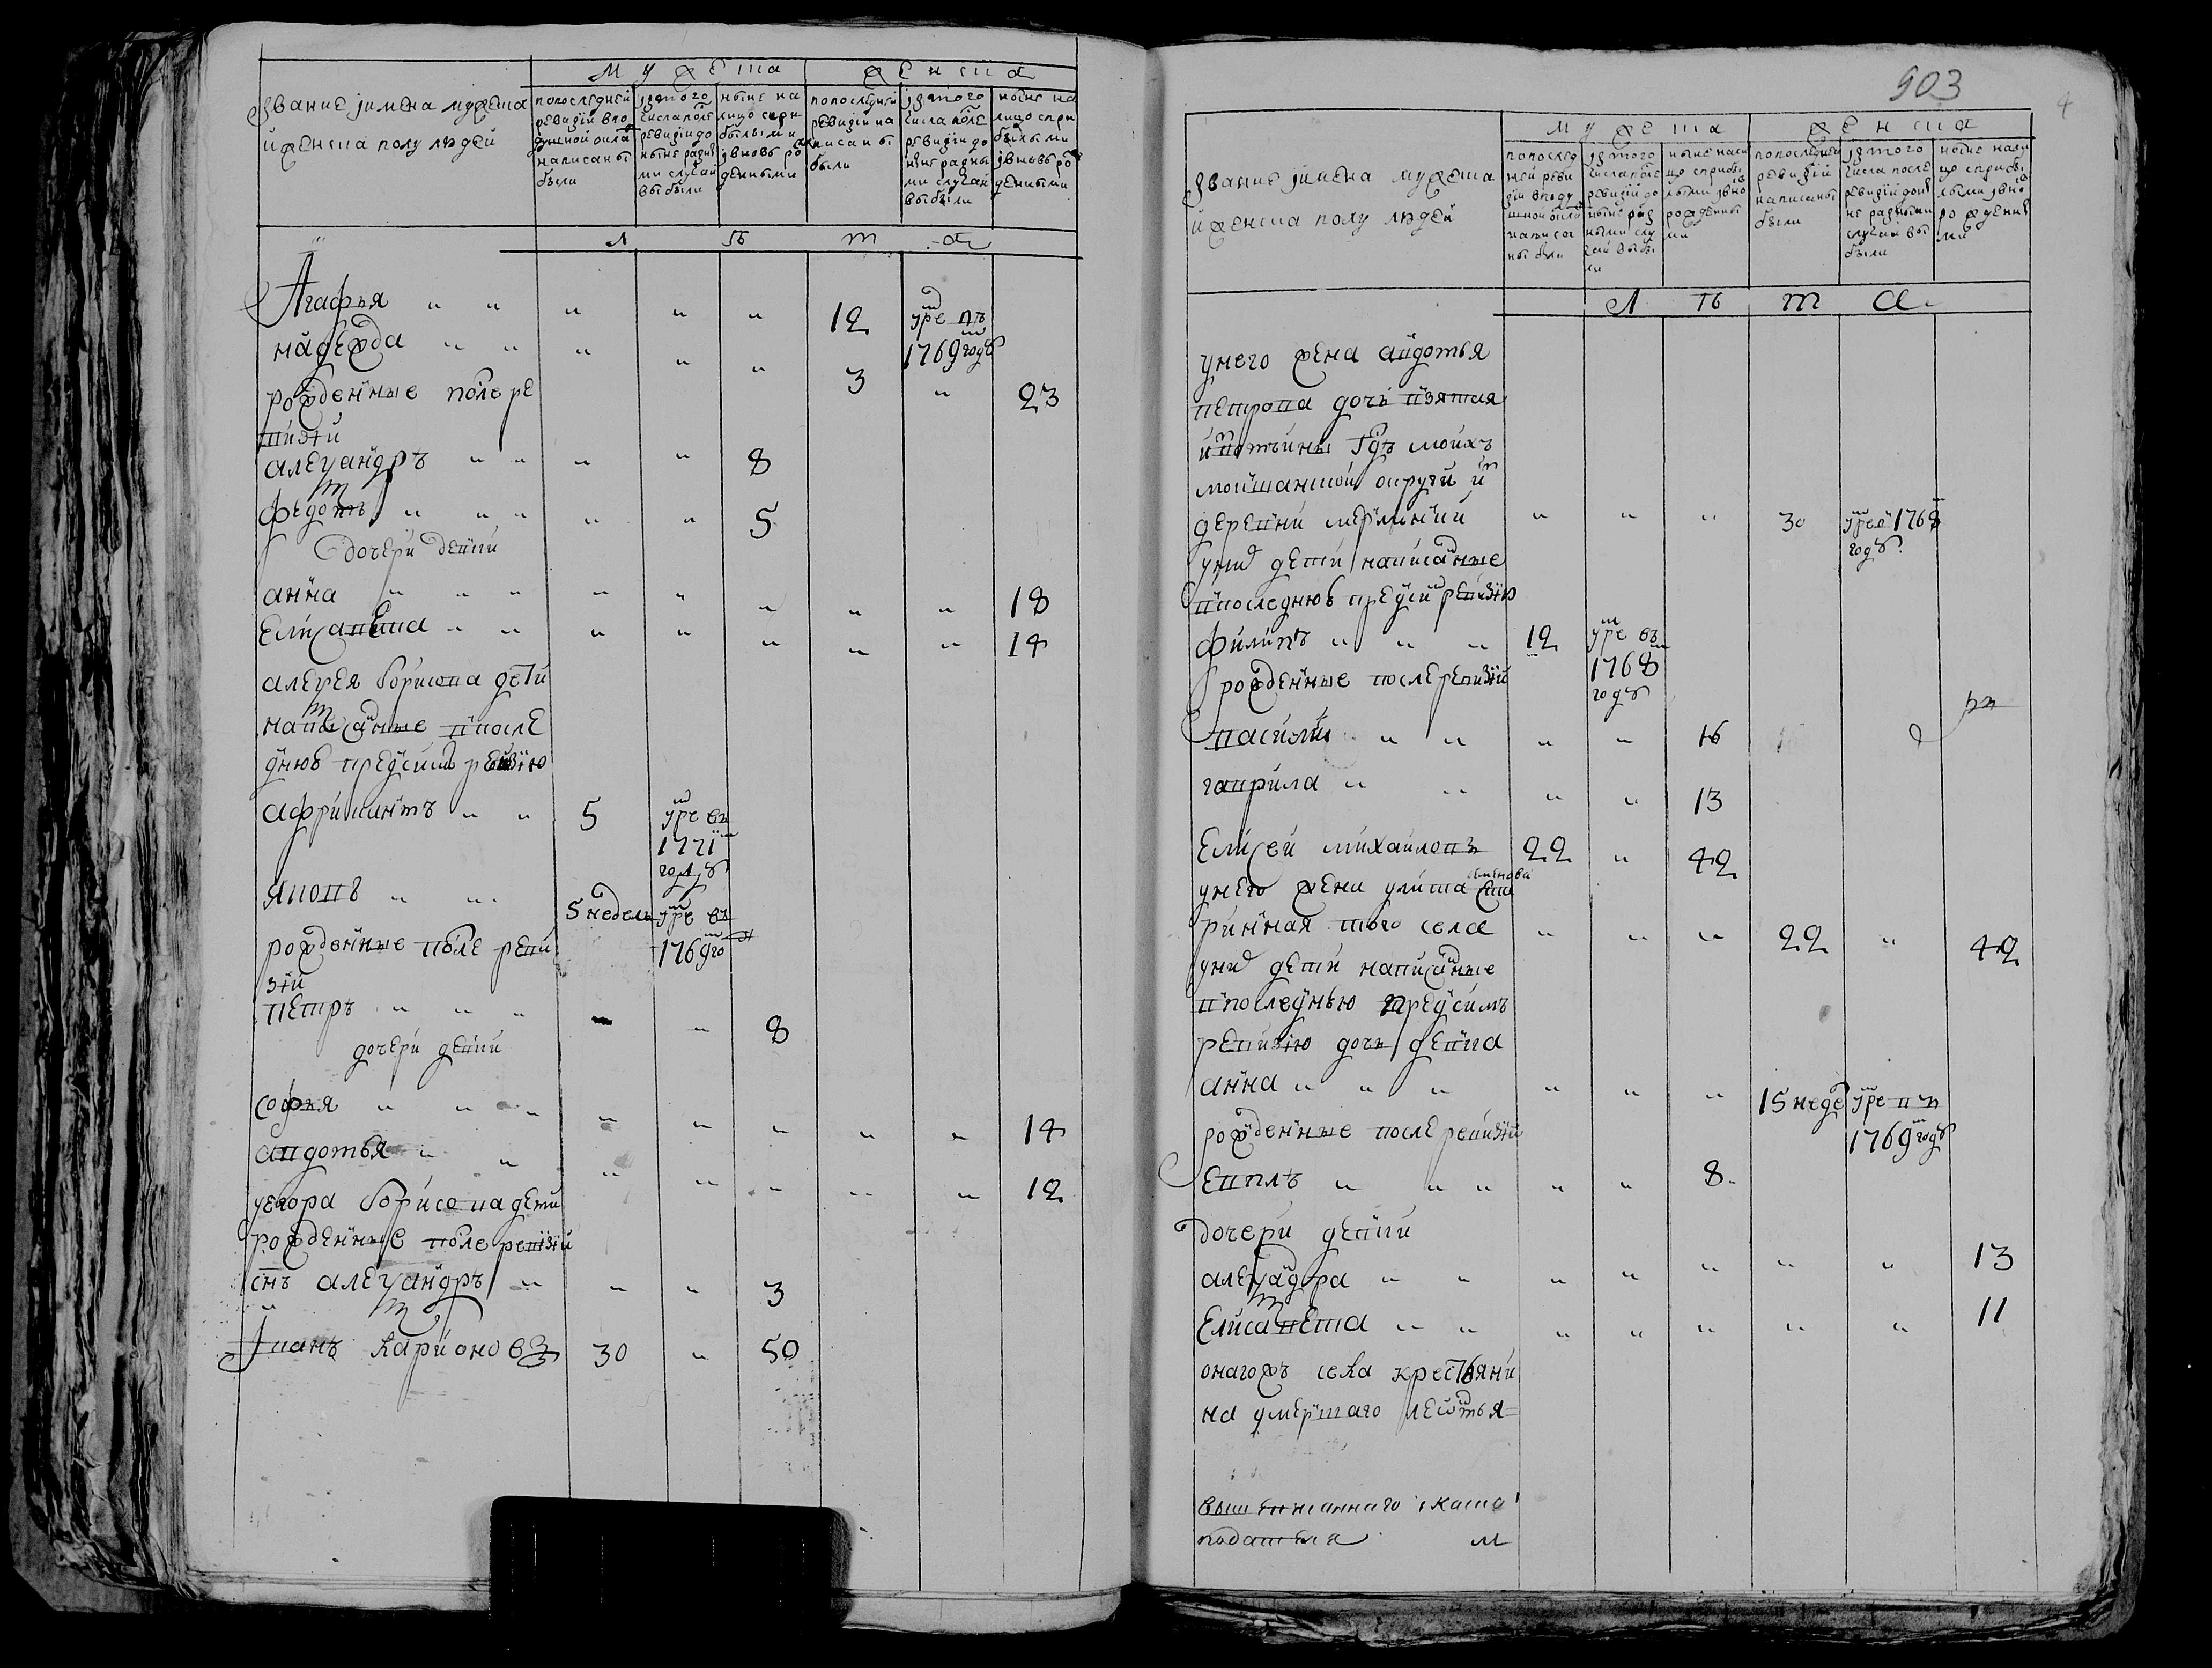 мужеска женска
Звание имена мужеска
и женска полу людей
по последней
ревизии в по
душной окла
написаны
были
из того
числа после
ревизии до
ныне разны
ми случаи
выбыли
ныне на
лицо с при
былыми
и вновь ро
жденными
по последней
ревизии на
писаны
были
из того
числа после
ревизии до
ныне разны
ми случаи
выбыли
ныне на
лицо с при
былыми
и вновь ро
жденными
л ѣ т а
Агафья " " " " " 12 умре въ
1769 году
надежда " " " " " 3 " 23
рожденные после ре
визии
александръ " " " " 8
федотъ " " " " " 5
дочери девки
анна " " " " " " " " 18
Елисавета " " " " " " " 14
алексея борисова дети
написанные в после
днюю пред симъ ревизию
африкантъ " " 5 умре въ
1771
году
яковъ " " 5 недель умре въ
1769 го
рожденные после реви
зии
петръ " " " " " 8
дочери девки
софья " " " " " " " " 14
авдотья " " " " " " " 12
у егора борисова дети
рожденные после ревизии
снъ александръ " " " 3
Иванъ Карионовъ 30 " 50
903
4
мужеска женска
Звание имена мужеска
и женска полу людей
по послед
ней реви
зии в поду
шной окла
написа
ны были
из того
числа после
ревизии до
ныне раз
ными слу
чаи выбы
ли
ныне нали
цо с прибы
лыми и вно
рожденны
ми
по последней
ревизии
написаны
были
из того
числа после
ревизии до ны
не разными
случаи вы
были
ныне нали
цо с прибы
лыми и вно
рожденны
ми
л ѣ т а
у него жена авдотья
петрова дочь взятая
и вотчины гдъ моихъ
мокшанской округи и
деревни " " " 30 умре 1768
году
у них дети написанные
в последнюю пред сим ревизию
филипъ " " " 12 умре въ
1768
году
рожденные после ревизии
василий " " " " 16
гаврила " " " " 13
Елисей михайловъ 22 " 42
у него жена улита семенова ста
ринная того села " " " 22 " 42
у них дети написанные
в последнюю пред симъ
ревизию дочь девка
анна " " " " " " 15 неде умре въ
1769 году
рожденные после ревизии
Евплъ " " " " " 8
дочери девки
александра " " " " " " " 13
Елисавета " " " " " " " 11
онагожъ села крестьяни
на умершаго